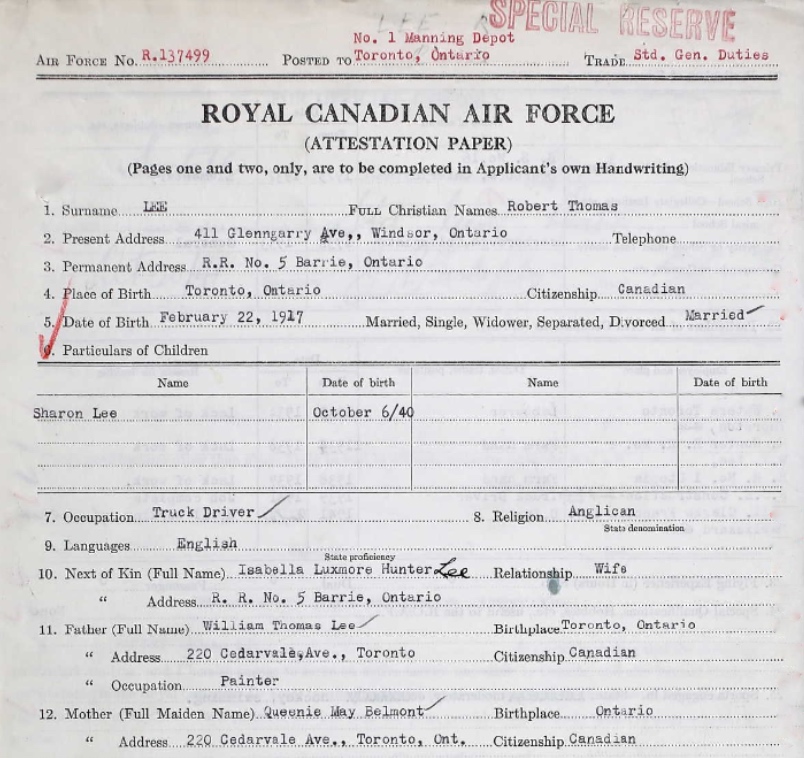 SPECIAL RESERVE
LEE R
No. 1 Manning Depot
AIR FORCE NO. R.137499 POSTED TO Toronto, Ontario TRADE Std. Gen. Duties
ROYAL CANADIAN AIR FORCE
(ATTESTATION PAPER)
(Pages one and two, only, are to be completed in Applicant's own Handwriting)
1. Surname LEE FULL Christian Names Robert Thomas
2. Present Address 411 Glenngarry Ave,, Windsor, Ontario Telephone
3. Permanent Address R.R. No. 5 Barrie, Ontario
4. Place of Birth Toronto, Ontario Citizenship Canadian
5. Date of Birth February 22, 1917 Married, Single, Widower, Separated, Divorced Married
6. Particulars of Children
Name Date of birth Name Date of birth
Sharon Lee October 6/40
7. Occupation Truck Driver 8. Religion Anglican
State denomination
9. Languages English
State proficiency
10. Next of Kin (Full Name) Isabella Luxmore Hunter Lee Relationship Wife
" Address R. R. No. 5 Barrie, Ontario
11. Father (Full Name) William Thomas Lee Birthplace Toronto, Ontario
" Address 220 Cedarvale,Ave., Toronto Citizenship Canadian
" Occupation Painter
12. Mother (Full Maiden Name) Queenie May Belmont Birthplace Ontario
" Address 220 Cedarvale Ave., Toronto, Ont. Citizenship Canadian